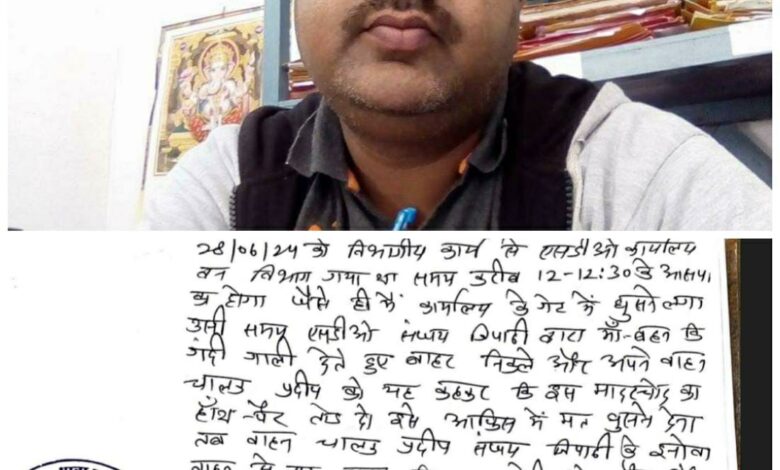 28/06/24 को विभागीय कार्य से एसडीओ कार्यालय
वन विभाग गया था समय करीब 12-12:30 के आसपा
का होगा जैसे ही मैं कार्यालय के गेट में घुसने लगा
उसी समय एसडीओ संजय त्रिपाठी द्वारा माँ-बहन कि
गंदी गाली देते हुए बाहर निकले और अपने वाहन
चालक प्रदीप को यह कहकर कि इस मादरचोद का
हाँथ-पैर तोड़ दो इसे आफिस में मत घुसने देना
तब वाहन चालक प्रदीप संजय त्रिपाठी कि इनोवा
वाहन से